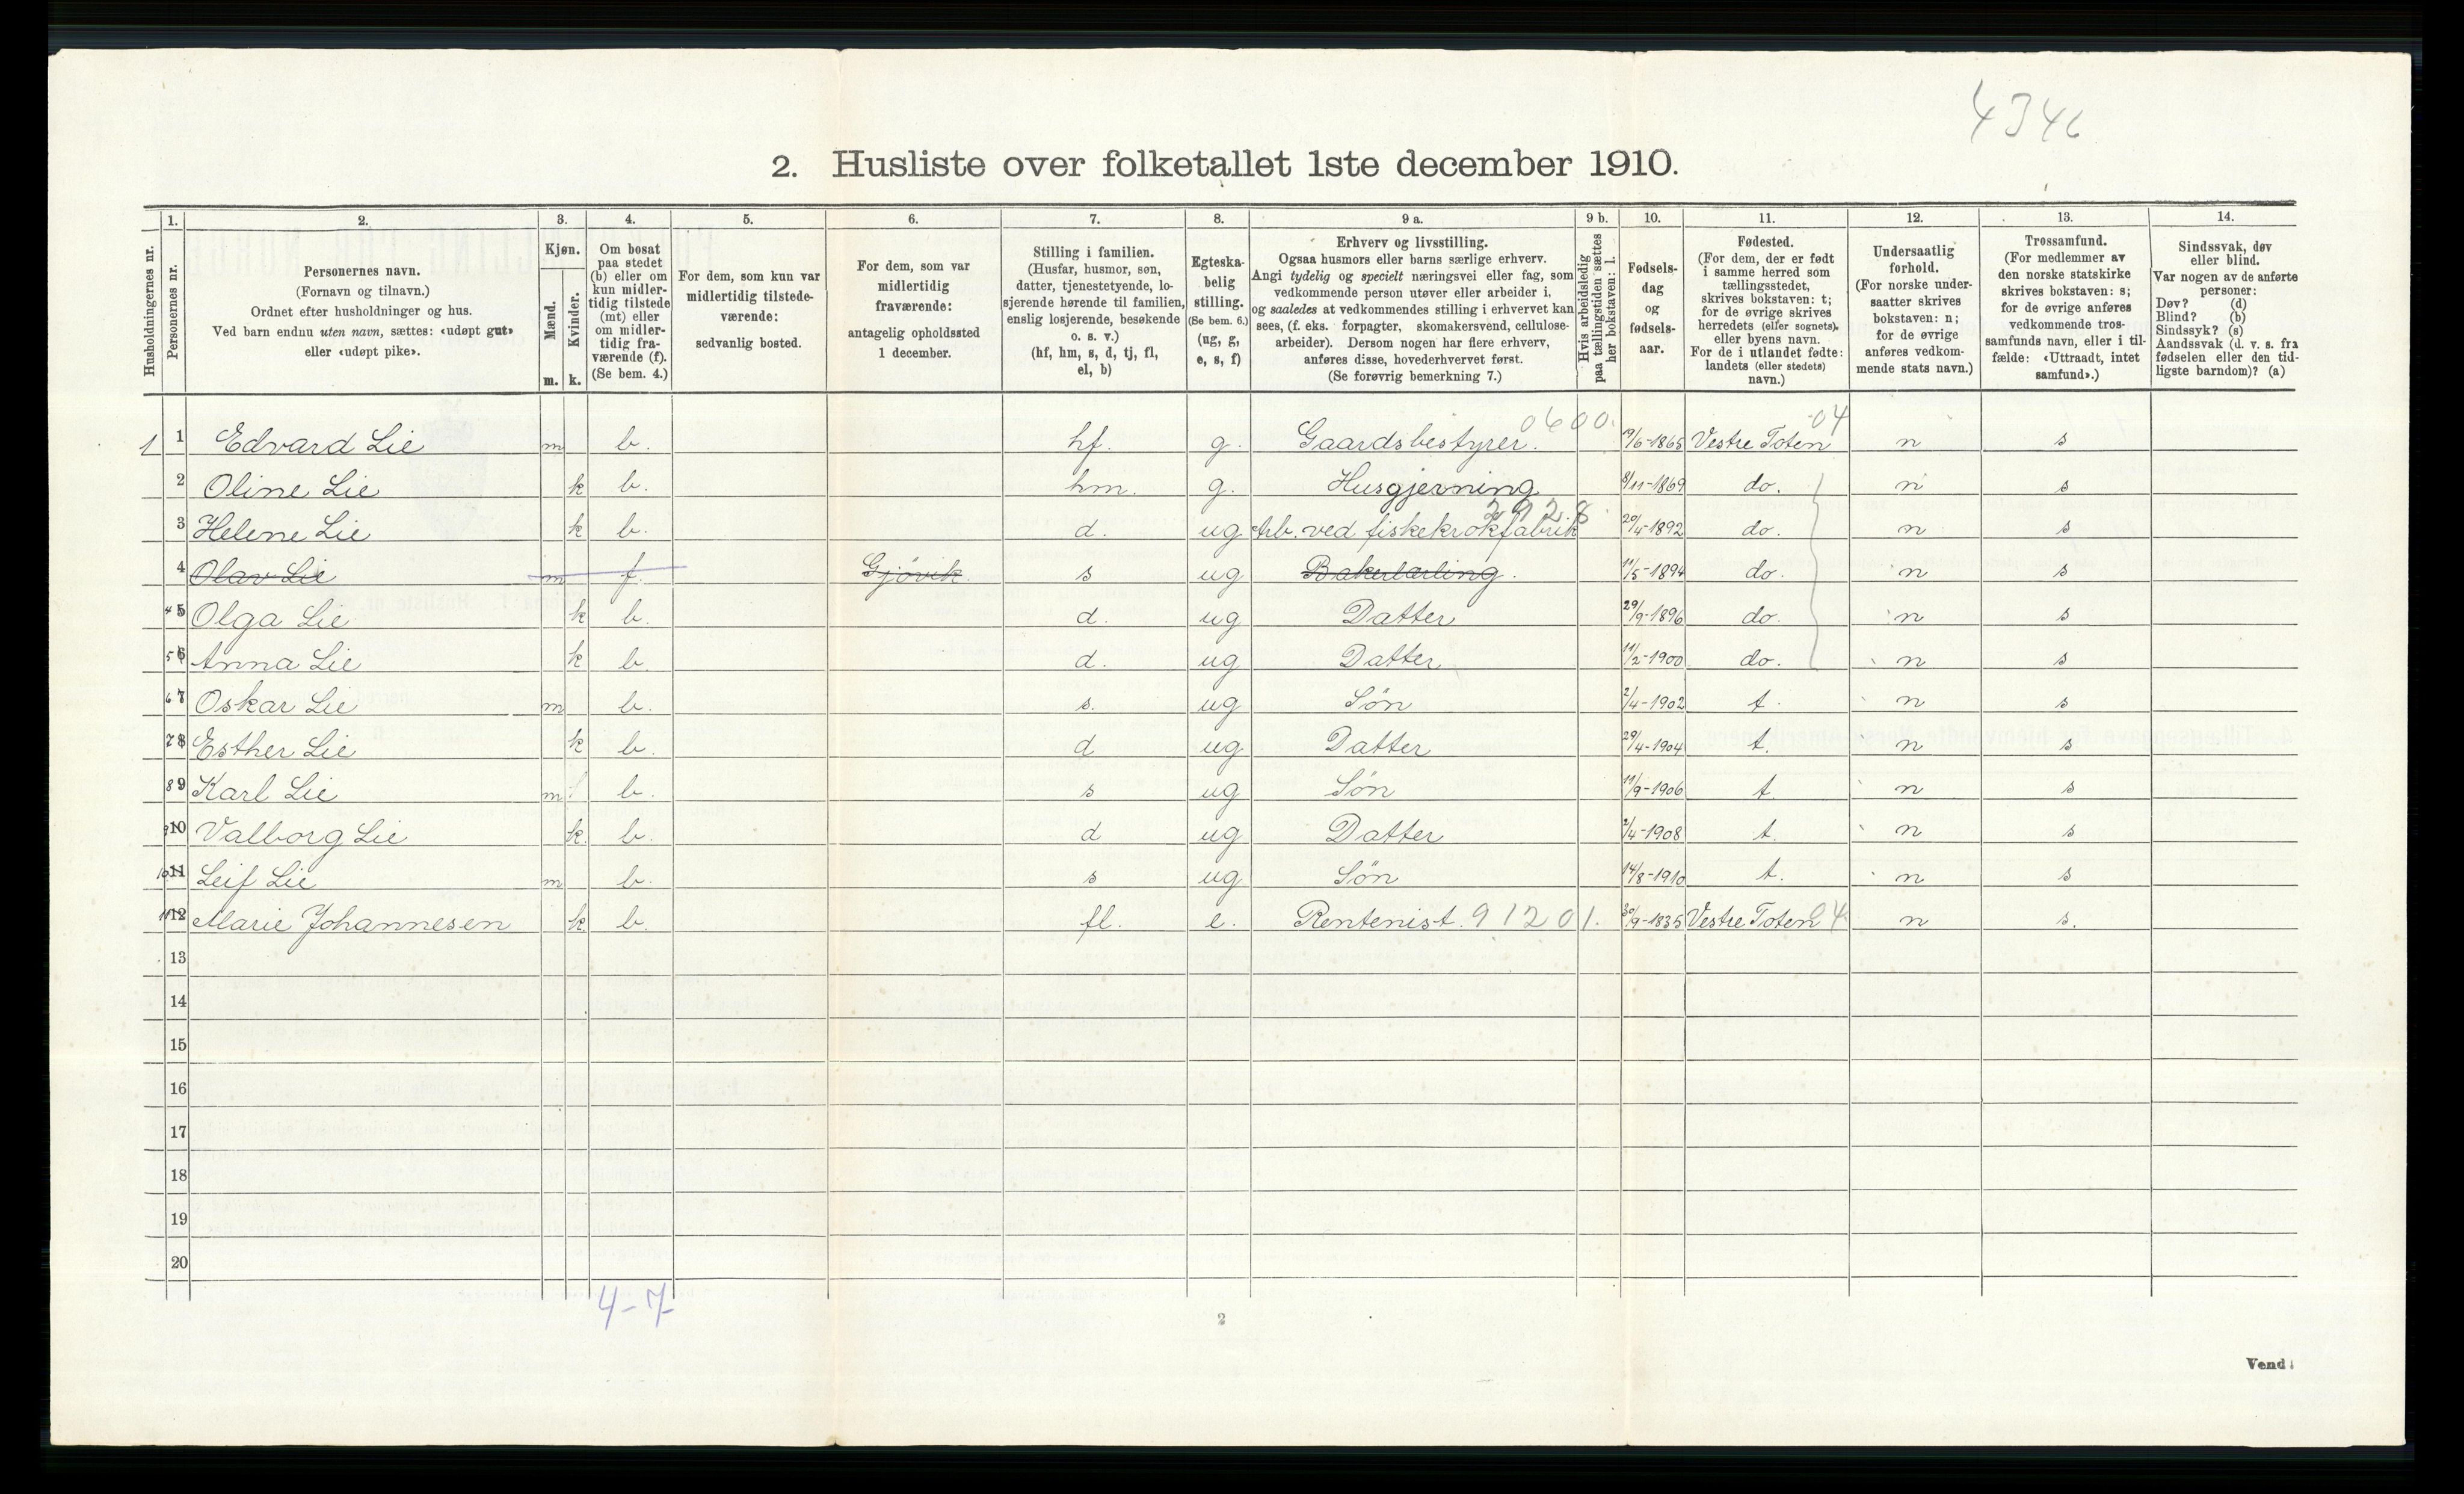 4346
2. Husliste over folketallet 1ste december 1910.
Husholdningernes nr.
1.
Personernes nr.
2.
Personernes navn.
(Fornavn og tilnavn.)
Ordnet efter husholdninger og hus.
Ved barn endnu uten navn, sættes: «udøpt gut»
eller «udøpt pike».
3.
Kjøn.
Mænd.
Kvinder.
m. k.
4.
Om bosat
paa stedet
(b) eller om
kun midler-
tidig tilstede
(mt) eller
om midler-
tidig fra-
værende (f).
(Se bem. 4.)
5.
For dem, som kun var
midlertidig tilstede-
værende:
sedvanlig bosted.
6.
For dem, som var
midlertidig
fraværende:
antagelig opholdssted
1 december.
7.
Stilling i familien.
(Husfar, husmor, søn,
datter, tjenestetyende, lo-
sjerende hørende til familien,
enslig losjerende, besøkende
o. s. v.)
(hf, hm, s, d, tj, fl,
el, b)
8.
Egteska-
belig
stilling.
(Se bem. 6.)
(ug, g,
e, s, f)
9 a.
Erhverv og livsstilling.
Ogsaa husmors eller barns særlige erhverv.
Angi tydelig og specielt næringsvei eller fag, som
vedkommende person utøver eller arbeider i,
og saaledes at vedkommendes stilling i erhvervet kan
sees, (f. eks. forpagter, skomakersvend, cellulose-
arbeider). Dersom nogen har flere erhverv,
anføres disse, hovederhvervet først.
(Se forøvrig bemerkning 7.)
9 b.
Hvis arbeidsledig
paa tællingstiden sættes
her bokstaven: l.
10.
Fødsels-
dag
og
fødsels-
aar.
11.
Fødested.
(For dem, der er født
i samme herred som
tællingsstedet,
skrives bokstaven: t;
for de øvrige skrives
herredets (eller sognets),
eller byens navn.
For de i utlandet fødte:
landets (eller stedets)
navn.)
12.
Undersaatlig
forhold.
(For norske under-
saatter skrives
bokstaven: n;
for de øvrige
anføres vedkom-
mende stats navn.)
13.
Trossamfund.
(For medlemmer av
den norske statskirke
skrives bokstaven: s;
for de øvrige anføres
vedkommende tros-
samfunds navn, eller i til-
fælde: «Uttraadt, intet
samfund».)
14.
Sindssvak, døv
eller blind.
Var nogen av de anførte
personer:
Døv? (d)
Blind? (b)
Sindssyk? (s)
Aandssvak (d. v. s. fra
fødselen eller den tid-
ligste barndom)? (a)
0600. 04
1 1 Edvard Lie m b. hf. g. Gaardsbestyrer. 19/6-1865 Vestre Toten n s
2 Oline Lie k b. hm. g. Husgjerning 8/11-1869 do. n s
2928
3 Helene Lie k b. d. ug Arb. ved fiskekrokfabrik 20/4-1892 do. n s
4 Olav Lie m f. Gjøvik. s ug Bakerlærling. 11/5-1894 do. n s
4 5 Olga Lie k b. d. ug Datter 29/9-1896 do. n s
5 6 Anna Lie k b. d. ug Datter 11/2-1900 do. n s
6 7 Oskar Lie m b. s. ug Søn 2/4-1902 t. n s
7 8 Esther Lie k b. d ug Datter 29/4-1904 t. n s
8 9 Karl Lie m b. s ug Søn 11/9-1906 t. n s
9 10 Valborg Lie k. b. d ug Datter 2/4-1908 t. n s
10 11 Leif Lie m b. s ug Søn 14/8-1910 t. n s
11 12 Marie Johannesen k. b. fl. e. Rentenist. 91201. 30/9-1835 Vestre Toten 04 n s.
13
14
15
16
17
18
19
20
4-7
2
Vend!